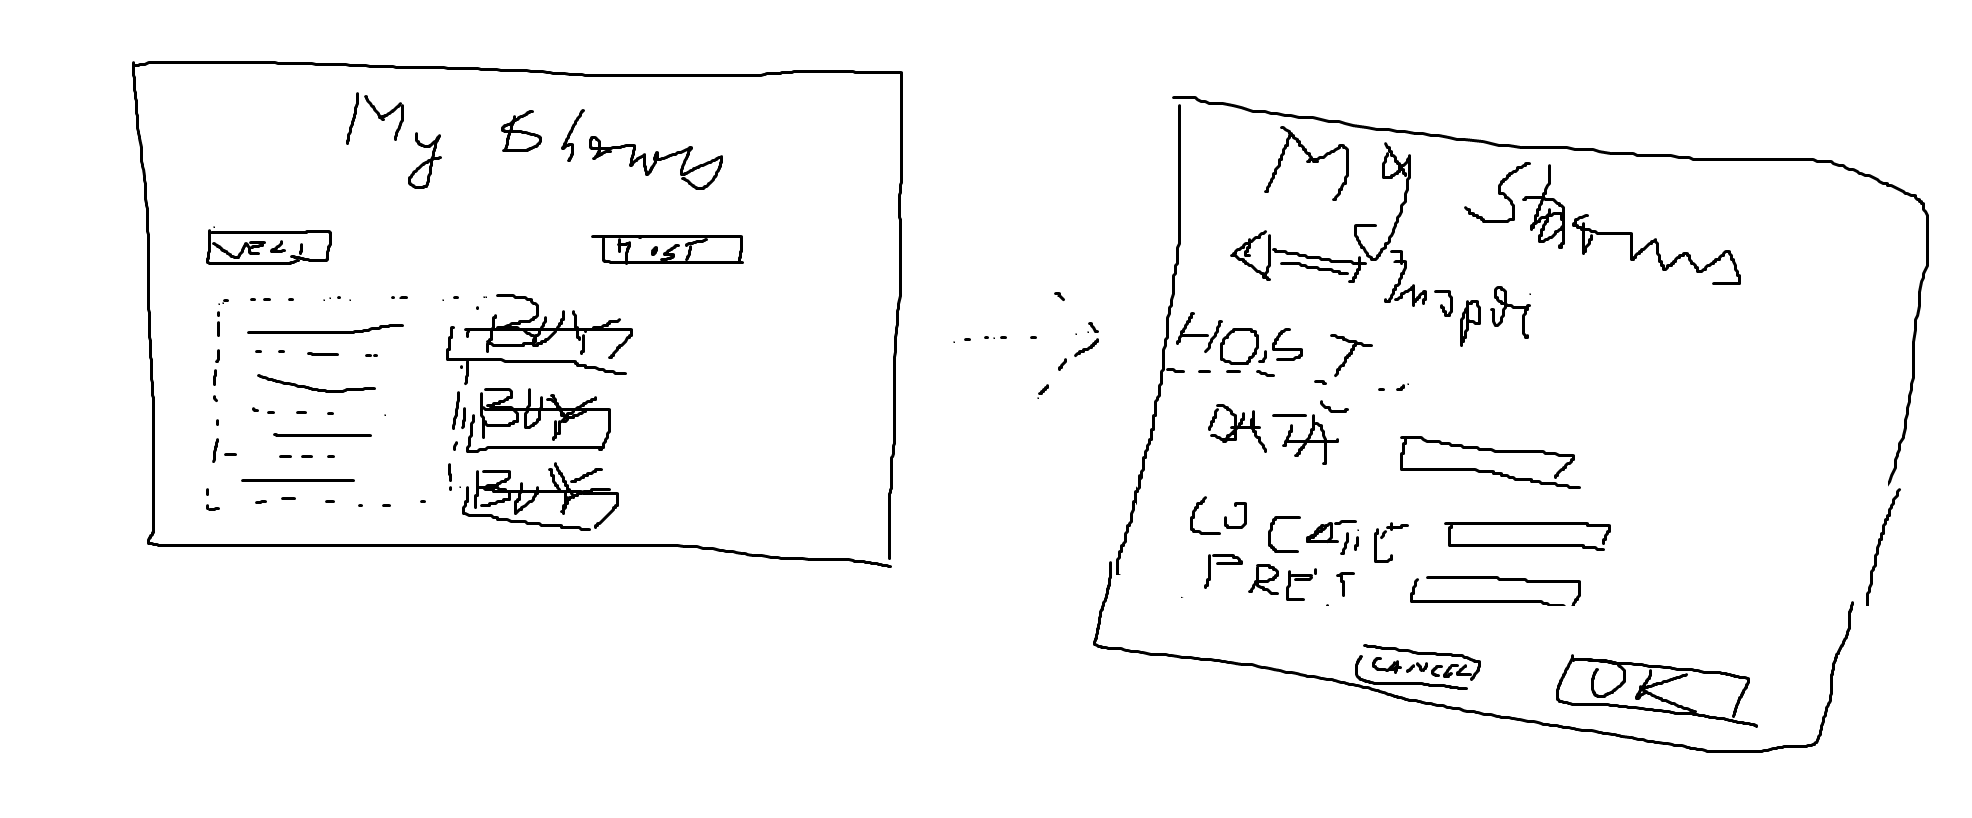 My Shows
VEZI
HOST
BUY
BUY
BUY
My Shows
Înapoi
HOST
DATĂ
LOCAȚIE
PREȚ
CANCEL
OK